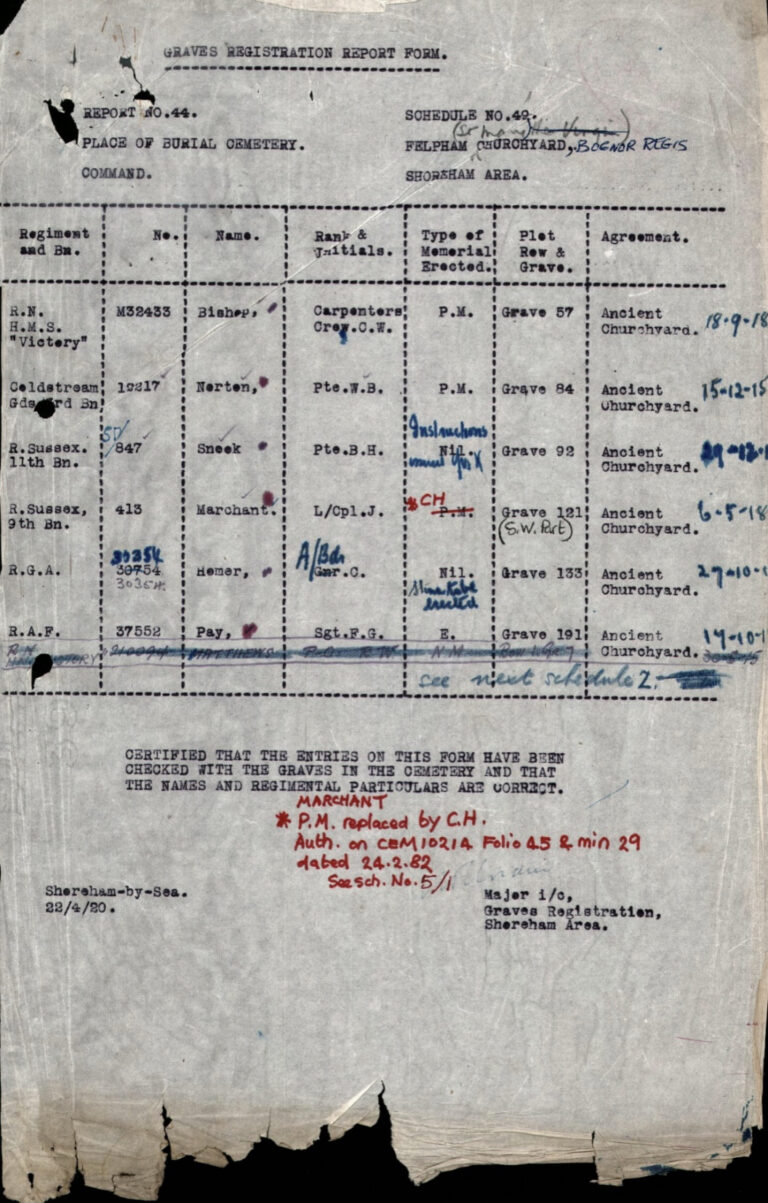 GRAVES REGISTRATION REPORT FORM.
REPORT NO.44. SCHEDULE NO.49.
(St Mary the Virgin)
PLACE OF BURIAL CEMETERY. FELPHAM CHURCHYARD, BOGNOR REGIS
COMMAND. SHOREHAM AREA.
Regiment and Bn. No. Name. Rank & Initials. Type of Memorial Erected. Plot Row & Grave. Agreement.
R.N. M32433 Bishop, Carpenters P.M. Grave 57 Ancient
H.M.S. Crew.C.W. Churchyard. 18-9-18
"Victory"
Coldstream 19217 Norton, Pte.W.B. P.M. Grave 84 Ancient 15-12-15
Gds 3rd Bn Churchyard.
SD/ Instructions
R.Sussex. 847 Snook Pte.B.H. Nil. Grave 92 Ancient
11th Bn. Churchyard.
R.Sussex, 413 Marchant. L/Cpl.J. P.M. * CH Grave 121 Ancient 6-5-18
9th Bn. (S.W. Part) Churchyard.
30354 A/Bdr
R.G.A. 30754 Homer, Gnr.C. Nil. Grave 133 Ancient 27-10-1
30354 Churchyard.
erected
R.A.F. 37552 Pay, Sgt.F.G. E. Grave 191 Ancient 17-10-1
R.N. 210094 MATTHEWS P.O. R W N.M. Churchyard.
see next schedule 2.
CERTIFIED THAT THE ENTRIES ON THIS FORM HAVE BEEN
CHECKED WITH THE GRAVES IN THE CEMETERY AND THAT
THE NAMES AND REGIMENTAL PARTICULARS ARE CORRECT.
MARCHANT
* P.M. replaced by C.H.
Auth. on CEM10214 Folio 45 & min 29
dated 24.2.82
See sch. No. 5/1
Shoreham-by-Sea. Major i/c,
22/4/20. Graves Registration,
Shoreham Area.